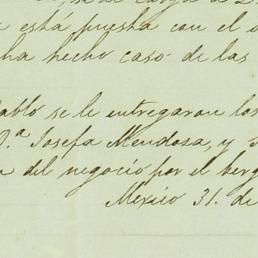 está puesta con el
ha hecho caso de las
Pablo se le entregaron los
D.ª Josefa Mendosa, y
del negocio por el berg
México 31. de